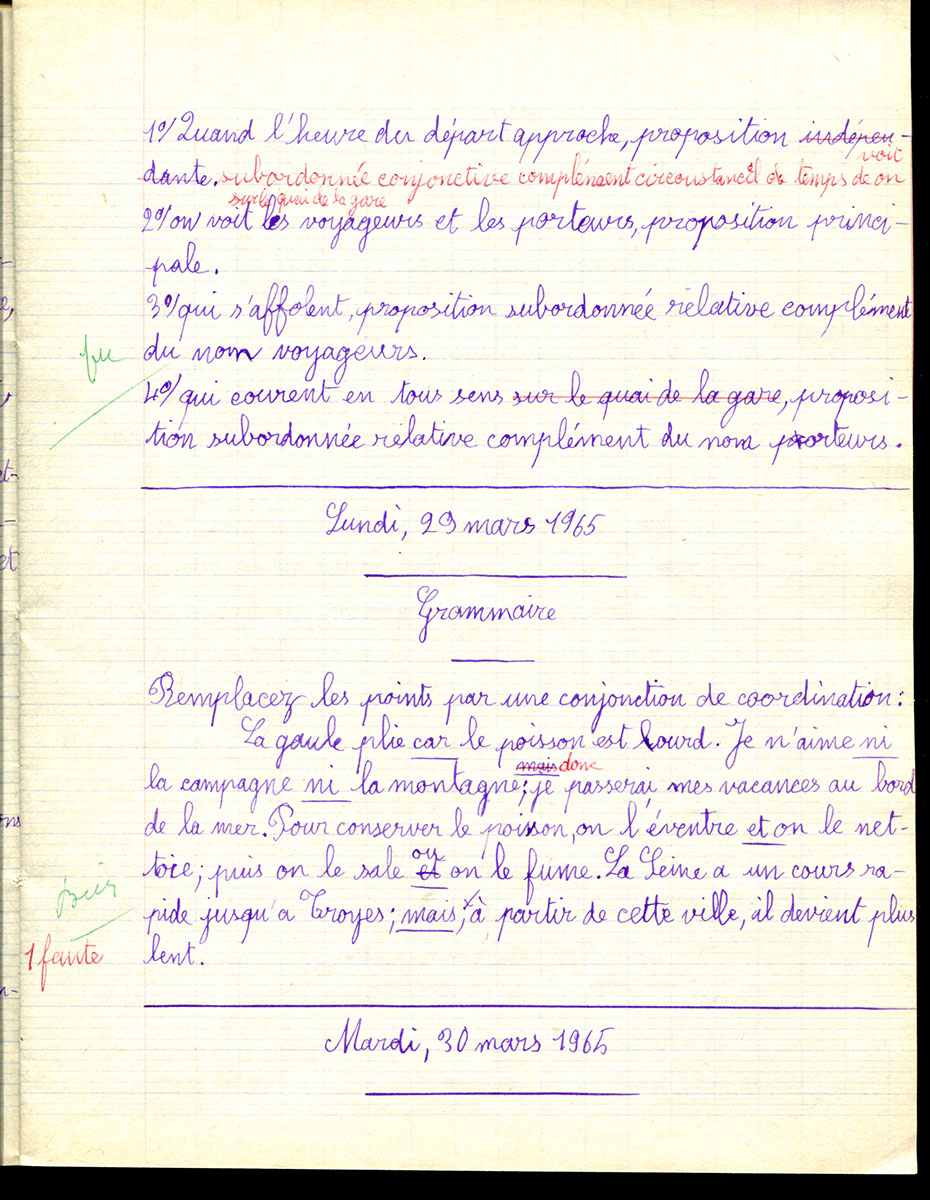 1°/ Quand l'heure du départ approche, proposition indépen-
voit
dante. subordonnée conjonctive complément circonstanciel de temps de on
sur le quai de la gare
2°/ on voit les voyageurs et les porteurs, proposition princi-
pale.
3°/ qui s'affolent, proposition subordonnée relative complément
vu
du nom voyageurs.
4°/ qui courent en tous sens sur le quai de la gare, proposi-
tion subordonnée relative complément du nom porteurs.
Lundi, 29 mars 1965
Grammaire
Remplacez les points par une conjonction de coordination :
La gaule plie car le poisson est lourd. Je n'aime ni
mais donc
la campagne ni la montagne; je passerai mes vacances au bord
de la mer. Pour conserver le poisson, on l'éventre et on le net-
ou
toie; puis on le sale et on le fume. La Seine a un cours ra-
Bien
pide jusqu'a Troyes; mais, à partir de cette ville, il devient plus
1 faute
lent.
Mardi, 30 mars 1965